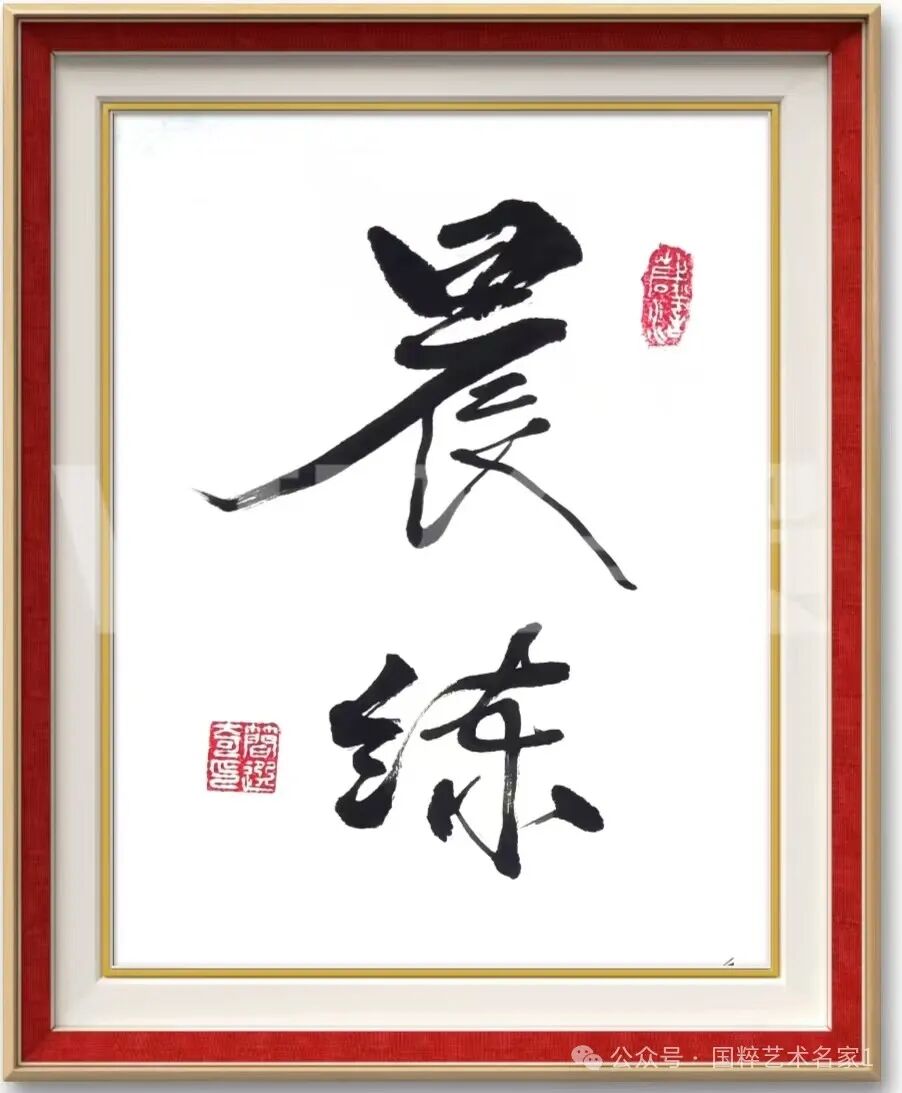 晨
练
公众号·国粹艺术名家1